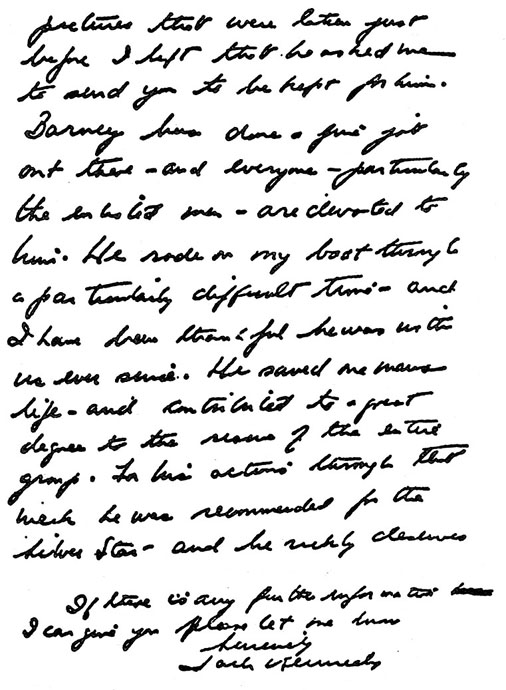 pictures that were taken just
before I left that he asked me
to send you to be kept for him.
Barney has done a fine job
out there - and everyone - particularly
the enlisted men - are devoted to
him. He rode on my boat through
a particularily difficult time - and
I have been thankful he was with
us ever since. He saved one mans
life - and contributed to a great
degree to the rescue of the entire
group. For his actions through that
week he was recommended for the
Silver Star - and he richly deserves
If there is any further information
I can give you please let me know
Sincerely
Jack Kennedy